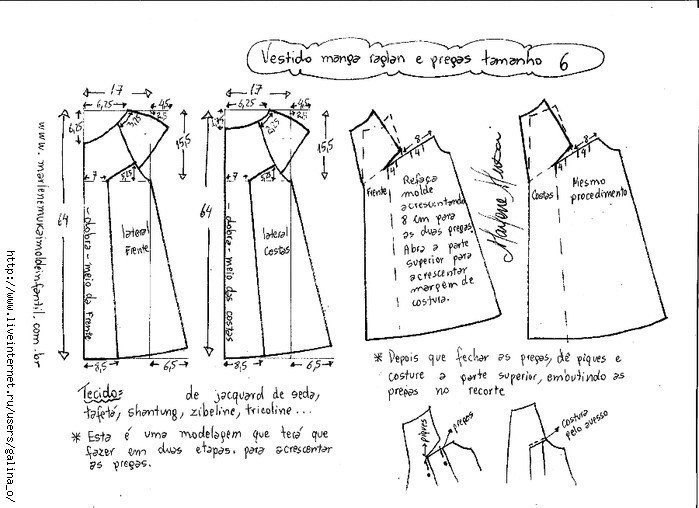 Vestido manga raglan e pregas tamanho 6
17
6,25
4,5
2,5
6,25
3,75
15,5
7
5,25
64
- dobra - meio da Frente
lateral
Frente
8,5
6,5
17
6,25
4,5
2,5
15,5
7
64
- dobra - meio das costas
lateral
Costas
8,5
6,5
8
4
4
Frente
Refaça
molde
acrescentando
8 cm para
as duas pregas
Abra a parte
superior para
acrescentar
margem de
costura.
8
4
4
Costas
Mesmo
procedimento
www.marlenemukaimoldeinfantil.com.br
http://www.liveinternet.ru/users/galina_o/
Tecido: de jacquard de seda,
tafetá, shantung, zibeline, tricoline...
* Esta é uma modelagem que terá que
fazer em duas etapas. para acrescentar
as pregas.
* Depois que fechar as pregas, dê piques e
costure a parte superior, embutindo as
pregas no recorte
piques
pregas
costura
pelo avesso